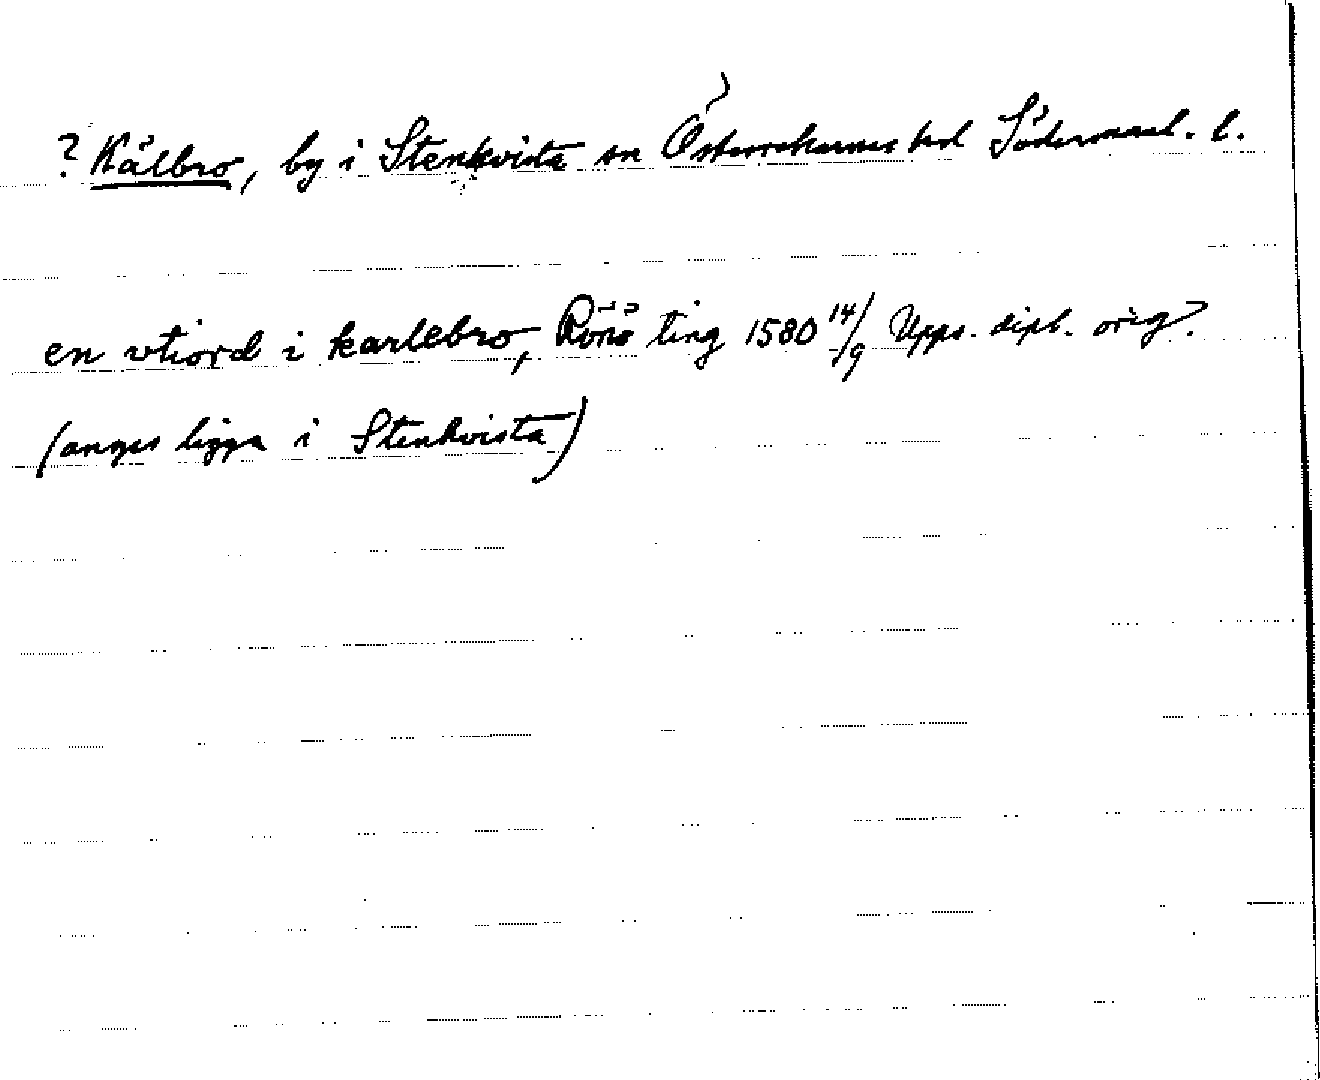 ? Kälbro, by i Stenkvista sn Österrekarne hd Södermanl. l.
en vtiord i karlebro, Rönö ting 1580 14/9 Upps. dipl. orig?
(anges ligga i Stenkvista)